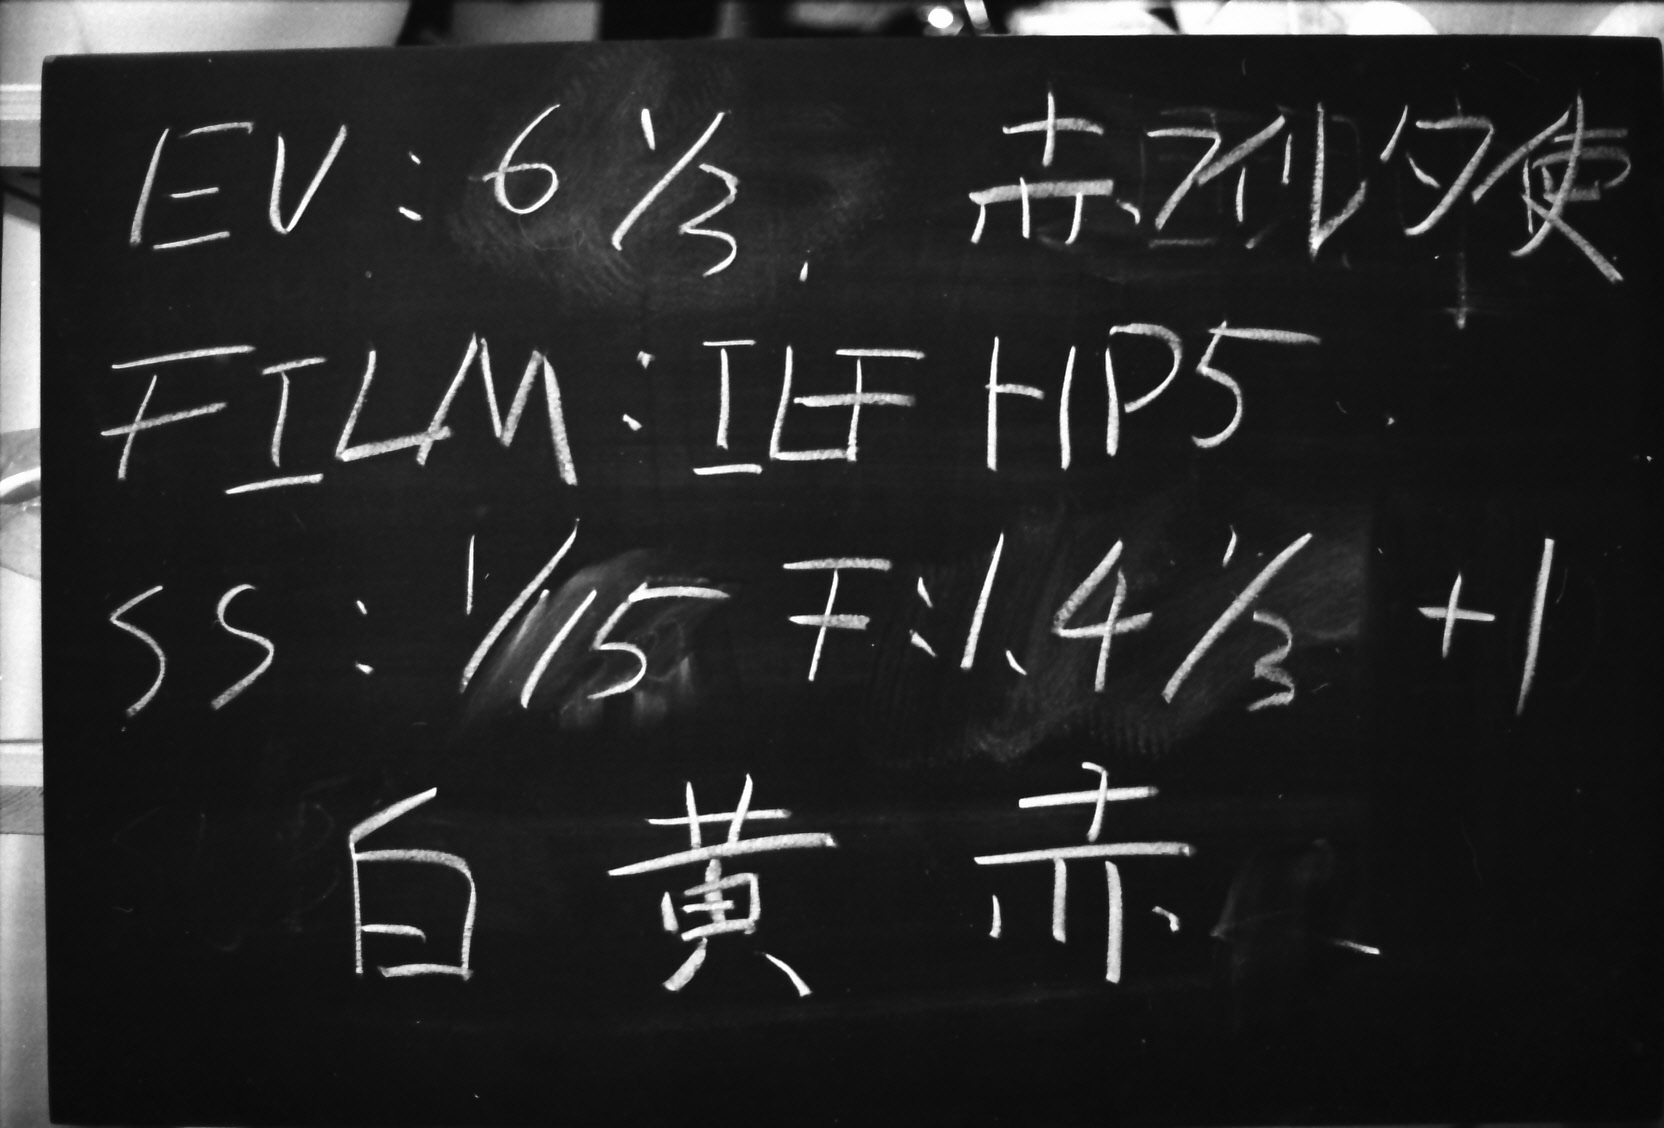 EV: 6 1/3 赤フィルタ使
FILM: ILF HP5
SS: 1/15 F:1.4 1/3 +1
白 黄 赤